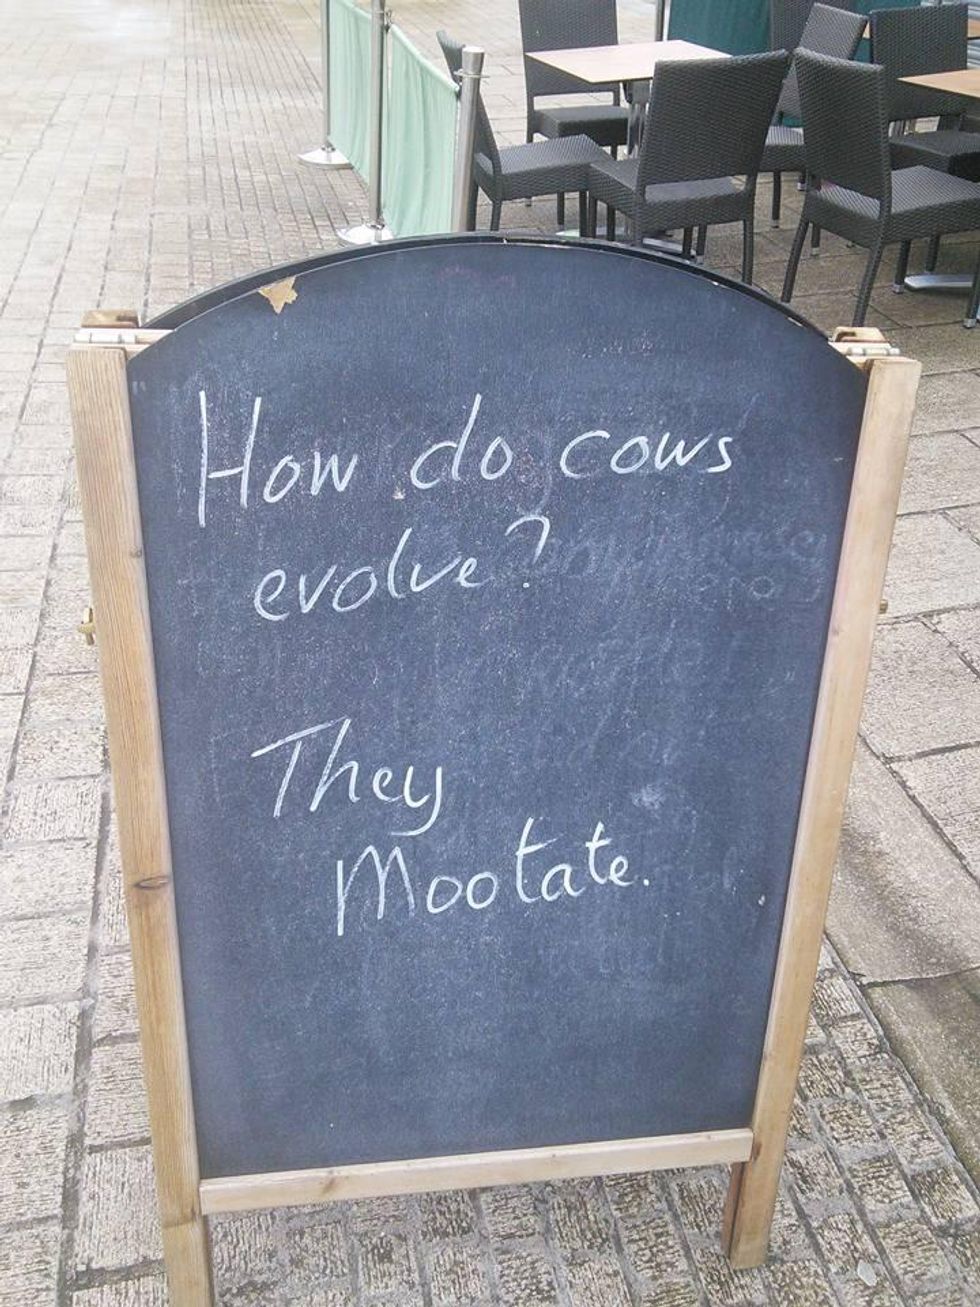 How do cows
evolve?
They
Mootate.